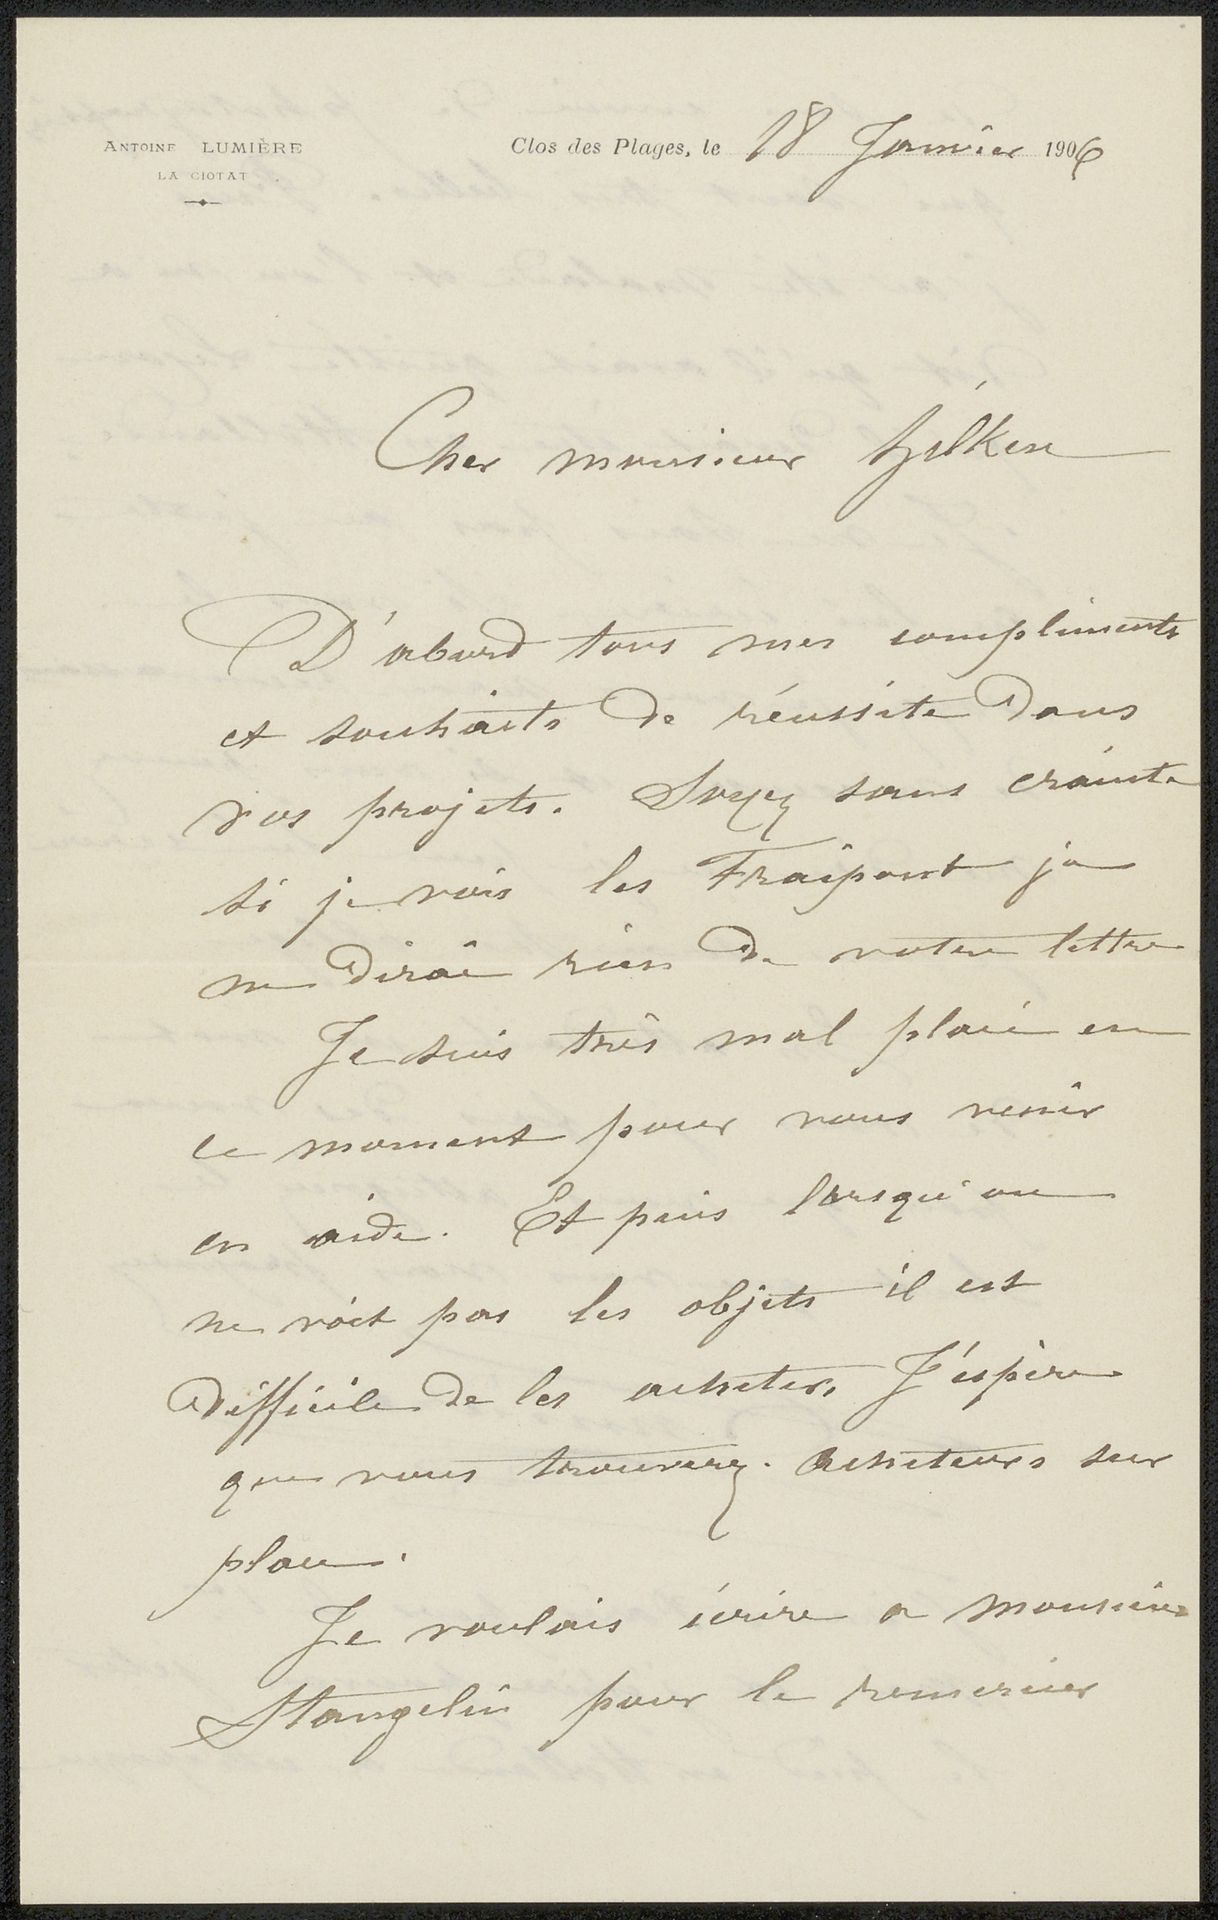 ANTOINE LUMIÈRE
LA CIOTAT
Clos des Plages, le 18 Janvier 1906
Cher monsieur Zilken
D'abord tous mes compliments
et souhaits de réussite dans
vos projets. Soyez sans crainte
si je vois les Fraipont je
ne dirai rien de votre lettre
Je suis très mal placé en
ce moment pour vous venir
en aide. Et puis lorsqu'on
ne voit pas les objets il est
difficile de les acheter. J'espère
que vous trouverez acheteurs sur
place.
Je voulais écrire a monsieur
Stangelin pour le remercier